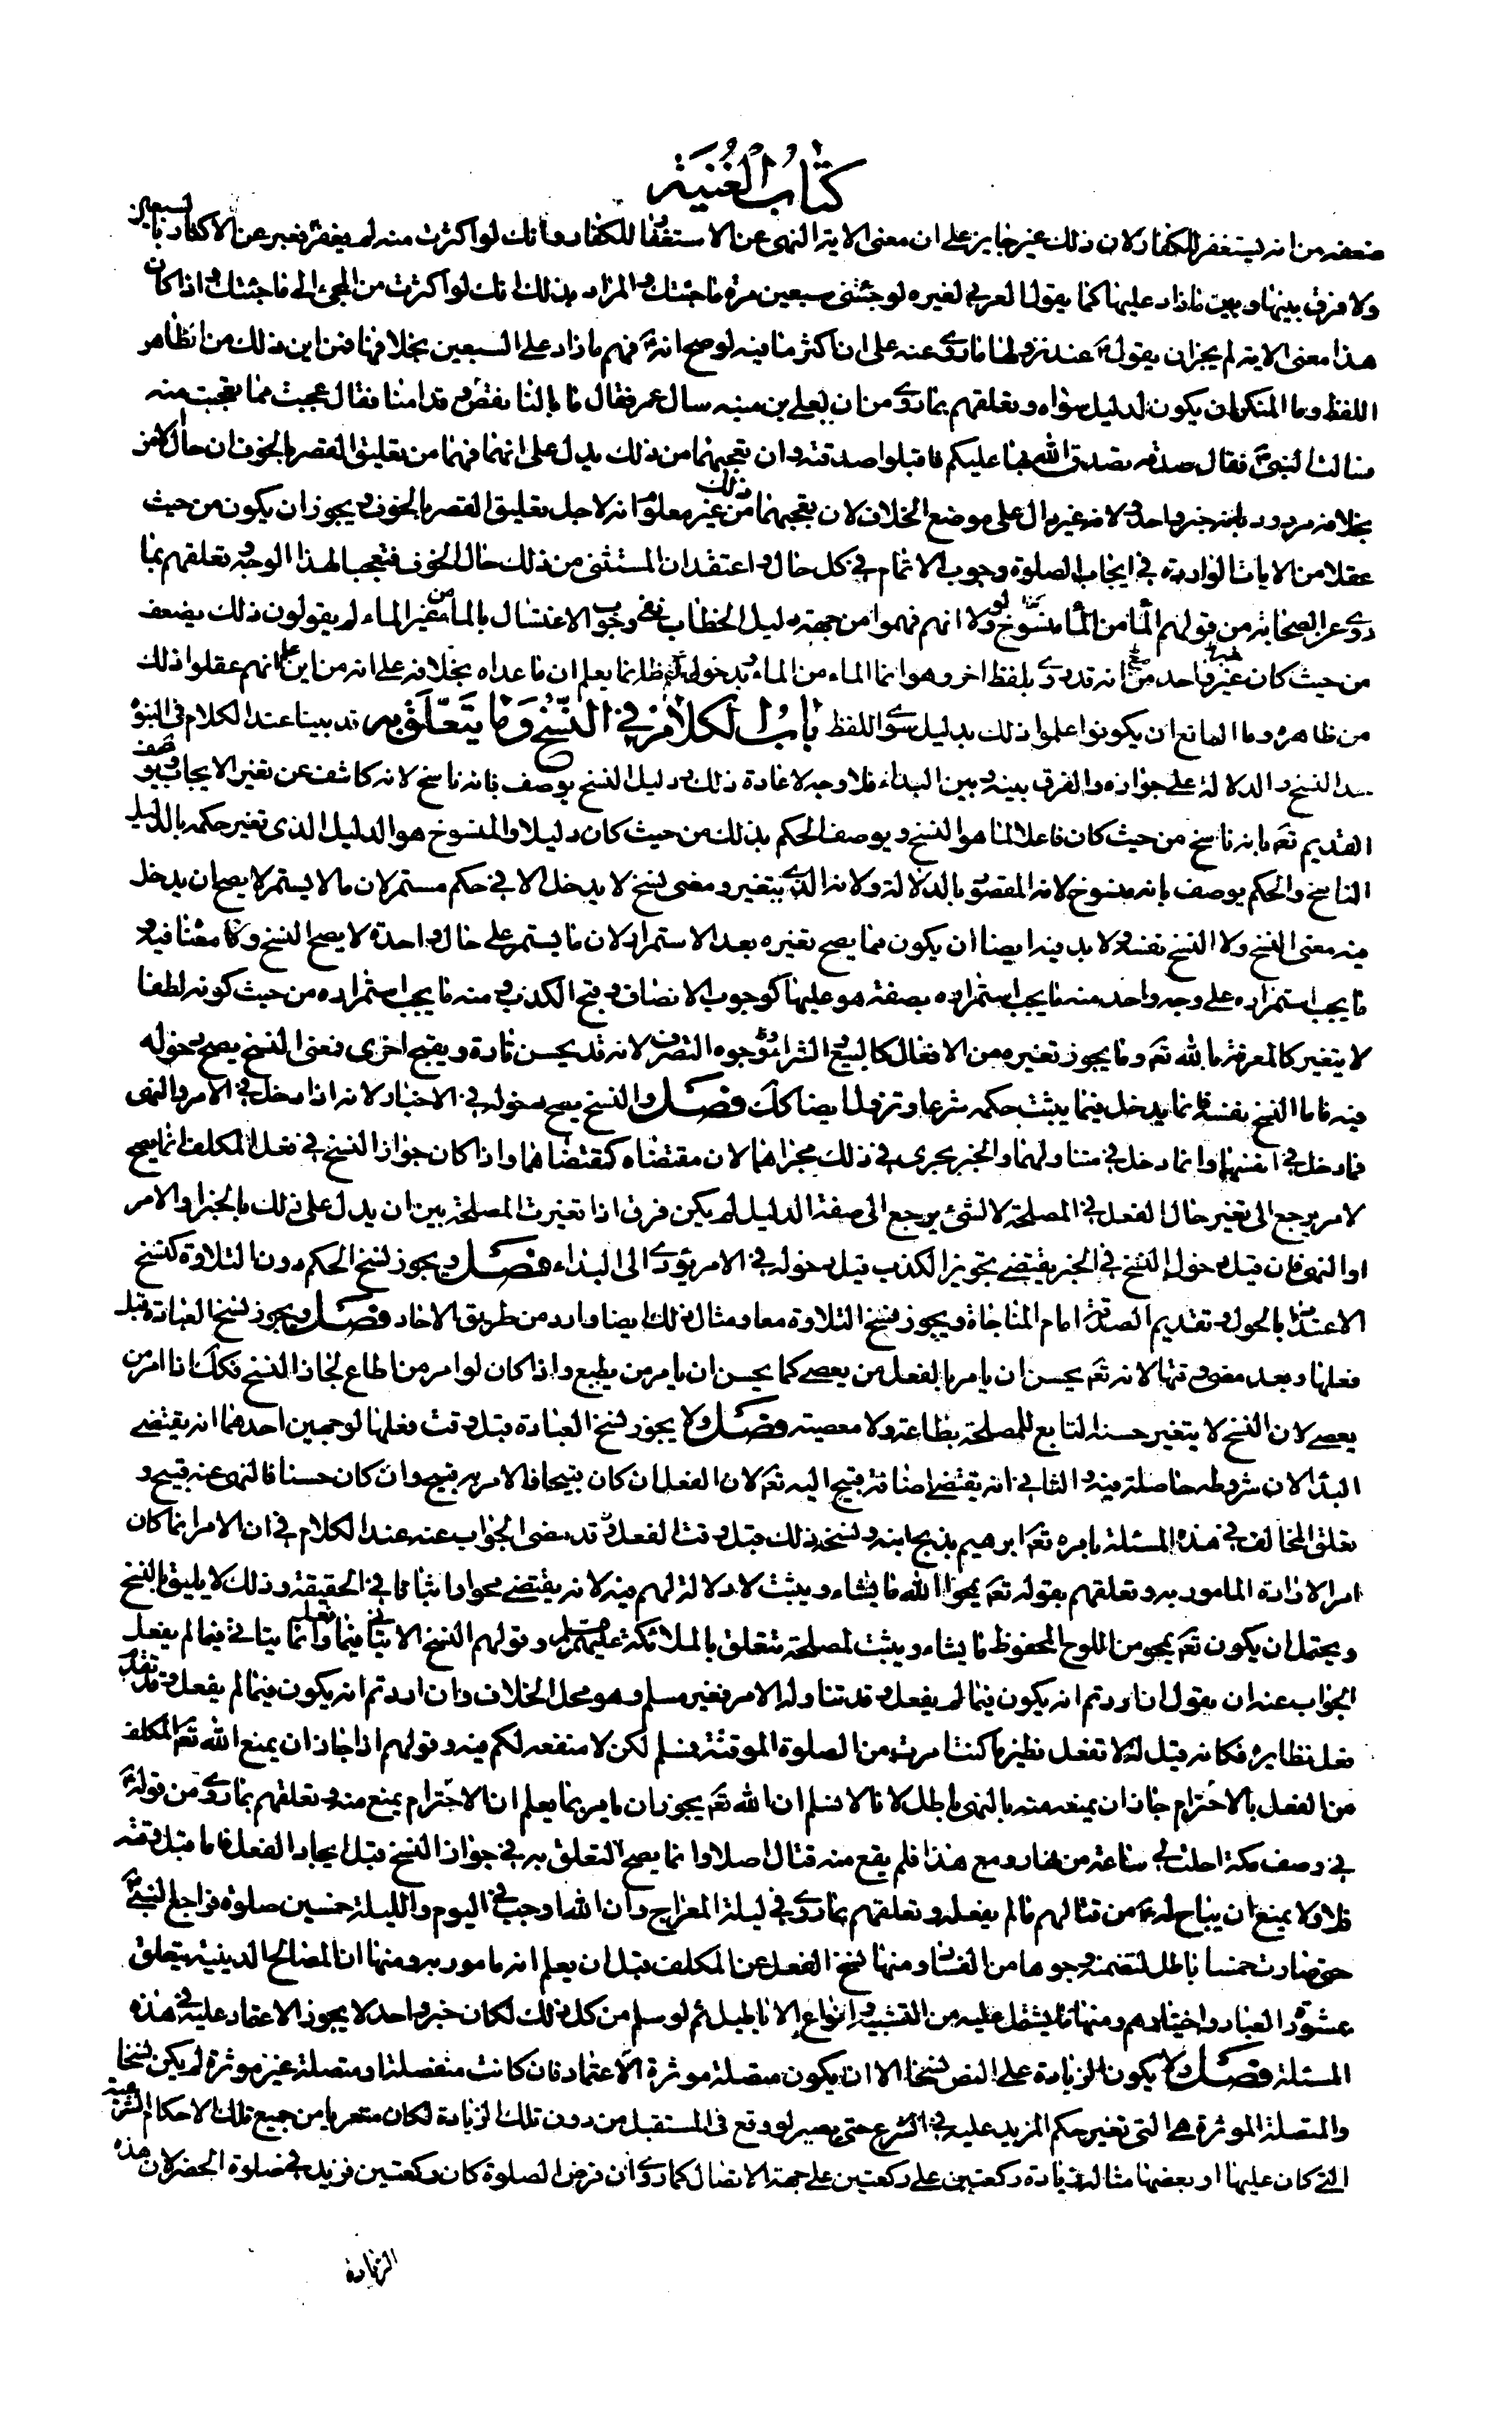 كتاب الغنية
ضعفه من انه يستغفر للكفار لان ذلك غير جايز على ان معنى الاية النهى عن الاستغفار للكفار وانك لو اكثرت منه لم يغفر فعبر عن الاكثار بالسبعين
ولا فرق بينها وبين ما زاد عليها كما يقول العربي لغيره لو جئتنى سبعين مرة ما جئتك والمراد بذلك انك لو اكثرت من المجئ الى ما جئتك واذا كان
هذا معنى الاية لم يجز ان يقول ع عند نزولها ما روى عنه على ان اكثر ما فيه لو صح انه ع فهم ما زاد على السبعين بخلافها فمن اين ذلك من ظاهر
اللفظ وما المنكر ان يكون لدليل سواه وتعلقهم بما روى من ان يعلى بن منيه سال عمر فقال ما بالنا نقصر وقد امنا فقال عجبت مما تعجبت منه
فسالت النبى ص فقال صدقة تصدق الله بها عليكم فاقبلوا صدقته وان تعجبهما من ذلك يدل على انهما فهما من تعليق القصر بالخوف ان حال الامن
بخلافه مردود بانه خبر واحد ولانه غير دال على موضع الخلاف لان تعجبهما من ذلك غير معلوم انه لاجل تعليق القصر بالخوف ويجوز ان يكون من حيث
عقلا من الايات الواردة في ايجاب الصلوة وجوب الاتمام في كل حال واعتقد ان المستثنى من ذلك حال الخوف فتعجبا لهذا الوجه وتعلقهم بما
روى عن الصحابة من قولهم الماء من الماء منسوخ ولولا انهم فهموا من جهة دليل الخطاب نفى وجوب الاغتسال بالماء من غير الماء لم يقولون ذلك يضعف
من حيث كان خبر واحد من انه قد روى بلفظ اخر وهو انما الماء من الماء وبدخول لفظ انما يعلم ان ما عداه بخلافه على انه من اين علم انهم عقلوا ذلك
من ظاهره وما المانع ان يكونوا علموا ذلك بدليل سوى اللفظ باب الكلام في النسخ وما يتعلق به قد بينا عند الكلام في النبوة
حد النسخ والدلالة على جوازه والفرق بينه وبين البداء فلا وجه لاعادة ذلك ودليل النسخ يوصف بانه ناسخ لانه كاشف عن تغير الايجاب ويوصف
القديم تع بانه ناسخ من حيث كان فاعلا لما هو النسخ ويوصف الحكم بذلك من حيث كان دليلا والمنسوخ هو الدليل الذى تغير حكمه بالدليل
الناسخ والحكم يوصف بانه منسوخ لانه المقصود بالدلالة ولانه الذى يتغير ومعنى نسخ لا يدخل الا في حكم مستمر لان ما لا يستمر لا يصح ان يدخل
فيه معنى النسخ ولا النسخ نفسه ولا بد فيه ايضا ان يكون مما يصح تغيره بعد الاستمرار لان ما يستمر على حال واحدة لا يصح النسخ ولا معناه فيه و
ما يجب استمراره على وجه واحد منه ما يجب استمراره بصفة هو عليها كوجوب الانصاف وقبح الكذب ومنه ما يجب استمراره من حيث كونه لطفا
لا يتغير كالمعرفة بالله تع وما يجوز تغيره من الافعال كالبيع والشراء ووجوه التصرف لانه قد يحسن تارة ويقبح اخرى فمعنى النسخ يصح دخوله
فيه فاما النسخ نفسه فانما يدخل فيما يثبت حكمه شرعا وتزول ايضا كك فصل والنسخ يصح دخوله في الاخبار لانه اذا دخل في الامر والنهى
فما دخل في انفسهما وانما دخل في متناولهما والخبر يجرى في ذلك مجراهما لان مقتضاه كمقتضاهما واذا كان جواز النسخ في فعل المكلف انما يصح
لامر يرجع الى تغير حال الفعل في المصلحة لا لشئ يرجع الى صفة الدليل لم يكن فرق اذا تغيرت المصلحة بين ان يدل على ذلك بالخبر او الامر
او النهى فان قيل دخول النسخ في الخبر يقتضى تجويز الكذب قيل دخوله في الامر يؤدى الى البداء فصل ويجوز نسخ الحكم دون التلاوة كنسخ
الاعتداد بالحول وتقديم الصدقة امام المناجاة ويجوز نسخ التلاوة معا ومثال ذلك ايضا وارد من طريق الاحاد فصل ويجوز نسخ العبادة قبل
فعلها وبعد مضى وقتها لانه تع يحسن ان يامر بالفعل من يعصى كما يحسن ان يامر من يطيع واذا كان لو امر من اطاع لجاز النسخ فكك اذا امر من
يعصى لان النسخ لا يتغير حسنه التابع للمصلحة بطاعة ولا معصية فصل ولا يجوز نسخ العبادة قبل وقت فعلها لوجهين احدهما انه يقتضى
البداء لان شروطه حاصلة فيه والثاني انه يقتضى اضافة قبيح اليه تع لان الفعل ان كان قبيحا فالامر به قبيح وان كان حسنا فالنهى عنه قبيح و
تعلق المخالف في هذه المسئلة بامره تع ابرهيم بذبح ابنه ونسخه ذلك قبل وقت الفعل قد مضى الجواب عنه عند الكلام في ان الامر انما كان
امرا لارادة المامور به وتعلقهم بقوله تع يمحوا الله ما يشاء ويثبت لا دلالة لهم فيه لانه يقتضى محوا واثباتا في الحقيقة وذلك لا يليق بالنسخ
ويحتمل ان يكون تع يمحو من اللوح المحفوظ ما يشاء ويثبت لمصلحة تتعلق بالملائكة عليهم السلم وقولهم النسخ لا يتاتى فيما فعل وانما يتاتى فيما لم يفعل
الجواب عنه ان يقول ان اردتم انه يكون فيما لم يفعل وقد تناوله الامر فغير مسلم وهو محل الخلاف وان اردتم انه يكون فيما لم يفعل وقد تقدم
فعل نظايره فكانه قيل له لا تفعل نظير ما كنت امرت به من الصلوة الموقتة فمسلم لكن لا منفعه لكم فيه وقولهم اذا جاز ان يمنع الله تع المكلف
من الفعل بالاخترام جاز ان يمنعه منه بالنهى باطل لانا لا نسلم ان الله تع يجوز ان يامر بما يعلم ان الاخترام يمنع منه وتعلقهم بما روى من قوله ع
في وصف مكة احلت لى ساعة من نهار ومع هذا فلم يقع منه قتال اصلا وانما يصح التعلق به في جواز النسخ قبل ايجاد الفعل فاما قبل وقته
فلا ولا يمنع ان يباح له ع من قتالهم ما لم يفعله وتعلقهم بما روى في ليلة المعراج وان الله اوجب في اليوم والليلة خمسين صلوة فراجع النبى ص
حتى صارت خمسا باطل لتضمنه وجوها من الفساد منها نسخ الفعل عن المكلف قبل ان يعلم انه مامور به ومنها ان المصالح الدينية يتعلق
بمشورة العباد واختيارهم ومنها ما يشتمل عليه من التشبيه وانواع الاباطيل ثم لو سلم من كل ذلك لكان خبر واحد لا يجوز الاعتماد عليه في هذه
المسئلة فصل ولا يكون الزيادة على النص نسخا الا ان يكون متصلة موثرة الاعتماد فان كانت منفصلة او متصلة غير موثرة لم يكن نسخا
والمتصلة الموثرة هى التى تغير حكم المزيد عليه في الشرع حتى يصير لو وقع في المستقبل من دون تلك الزيادة لكان متعريا من جميع تلك الاحكام الشرعية
التى كان عليها او بعضها مثاله زيادة ركعتين على ركعتين على جهة الاتصال كما روى ان فرض الصلوة كان ركعتين فزيد في صلوة الحضر لان هذه
الزيادة